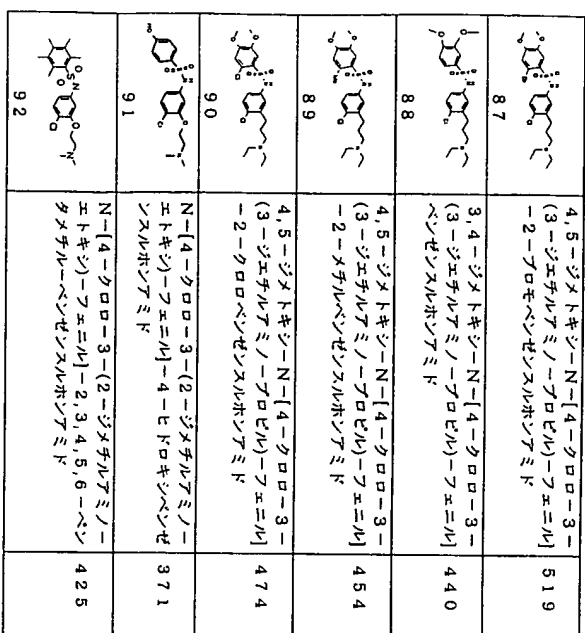 87
4,5－ジメトキシ－N－[4－クロロ－3－
(3－ジエチルアミノ－プロピル)－フェニル]
－2－ブロモベンゼンスルホンアミド
519
88
3,4－ジメトキシ－N－[4－クロロ－3－
(3－ジエチルアミノ－プロピル)－フェニル]
ベンゼンスルホンアミド
440
89
4,5－ジメトキシ－N－[4－クロロ－3－
(3－ジエチルアミノ－プロピル)－フェニル]
－2－メチルベンゼンスルホンアミド
454
90
4,5－ジメトキシ－N－[4－クロロ－3－
(3－ジエチルアミノ－プロピル)－フェニル]
－2－クロロベンゼンスルホンアミド
474
91
N－[4－クロロ－3－(2－ジメチルアミノ－
エトキシ)－フェニル]－4－ヒドロキシベンゼ
ンスルホンアミド
371
92
N－[4－クロロ－3－(2－ジメチルアミノ－
エトキシ)－フェニル]－2,3,4,5,6－ペン
タメチル－ベンゼンスルホンアミド
425